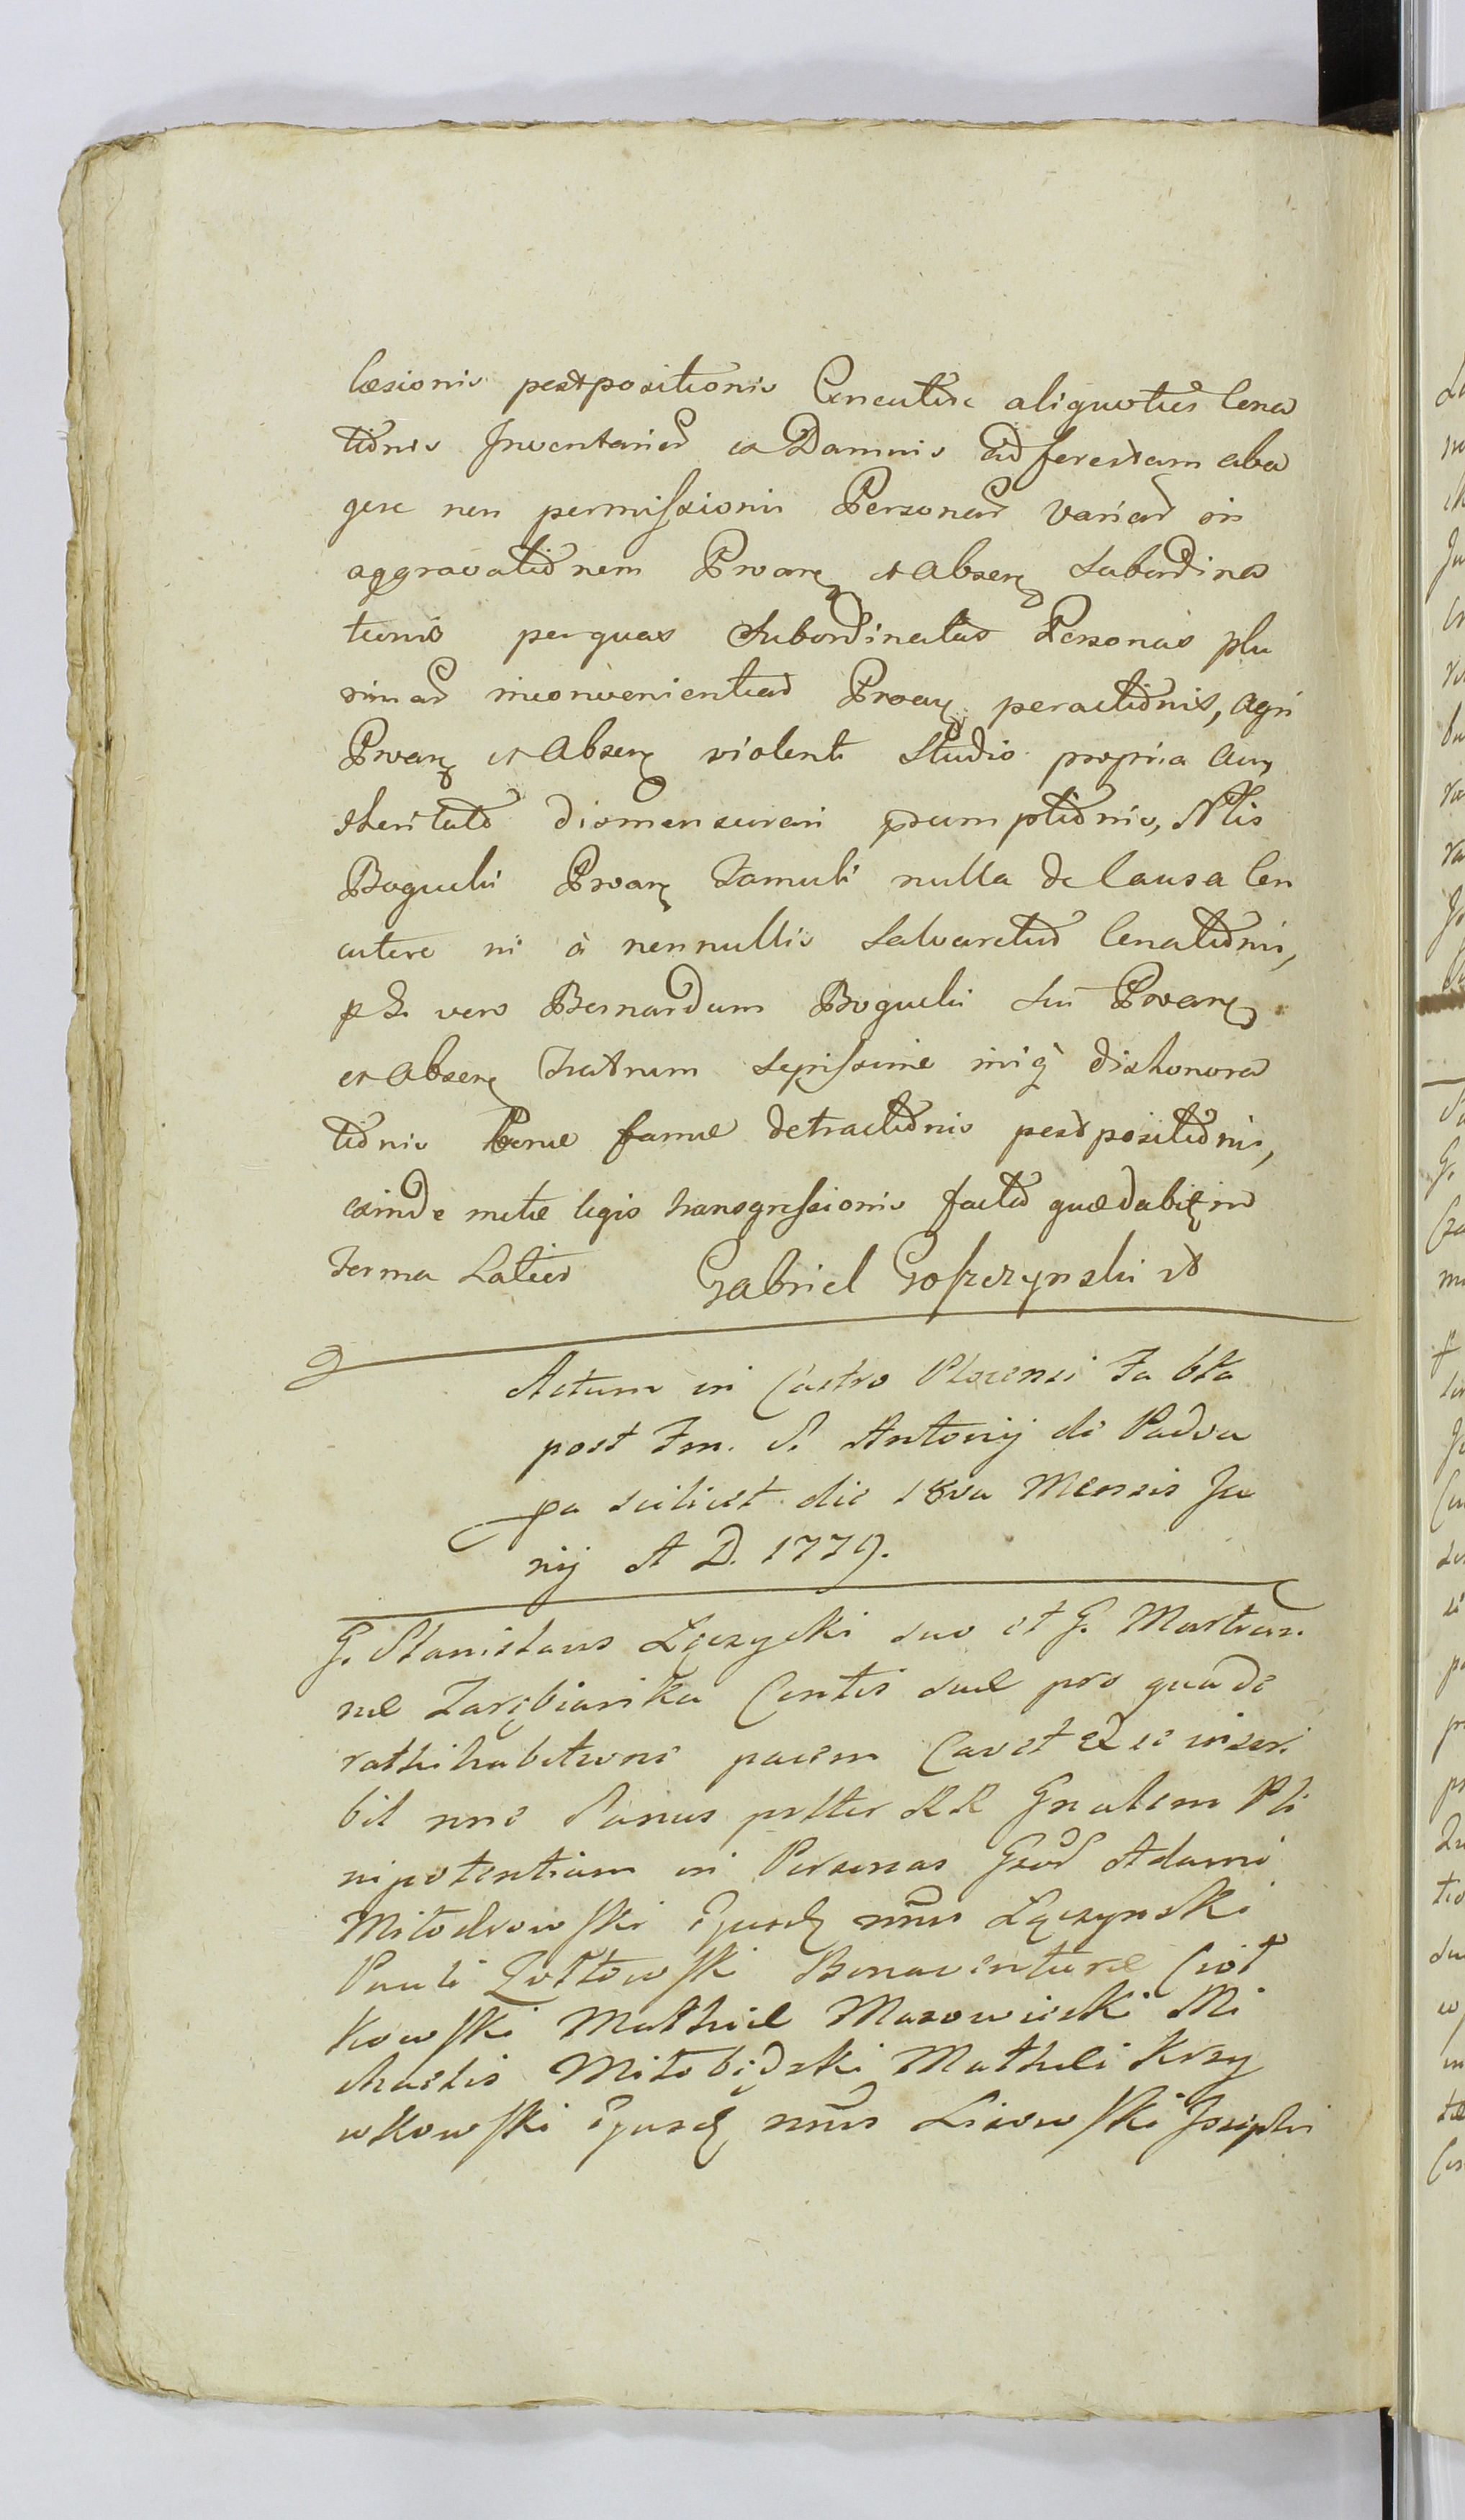 læsionis postpositionis Concutere aliquoties Cona
tionis Inventarior ex Damnis ad forestam aba
gere non permissionis Personar variar in
aggravationem Prvarz et Absenz Subordina
tionis per quas Subordinatas Personas plu
rimar inconvenientiar Prvarz peractionis, agri
Prvarz et Absenz violenti Studio propria Auc
thoritate dismensurari praesumptionis, Nlis
Bogucki Prvarz Famuli nulla de Causa Con
cutere ni à nonnullis Salvaretur Conationis,
p S. vero Bernardum Bogucki sui Prvarz
et Absenz Fratrum sepissime iniq dishonora
tionis bonæ famæ detractionis postpositionis,
exinde metæ legis transgressionis factor quædabitz in
Terma Latior Gabriel Goszczynski
Actum in Castro Plocensi Fa 6ta
post Fm. S. Antonij de Padva
pa scilicet die 18va Mensis Ju
nij A D. 1779.
G. Stanislaus Łączycki suo et G. Martian
næ Zarębianka Contis suæ pro qua de
rathihabitione pacem Cavet & se inscri
bit nne Sanus prtter RR Gnalem Ple
nipotentiam in Personas Gsor Adami
Miłodrowski Ejusdz nnis Łączynski
Pauli Żółtowski Bonaventuræ Ciot
kowski Mathiæ Mazowiecki Mi
chaelis Miłobędzki Mathæi Krzy
wkowski Ejusdz nnis Lisowski Josephi